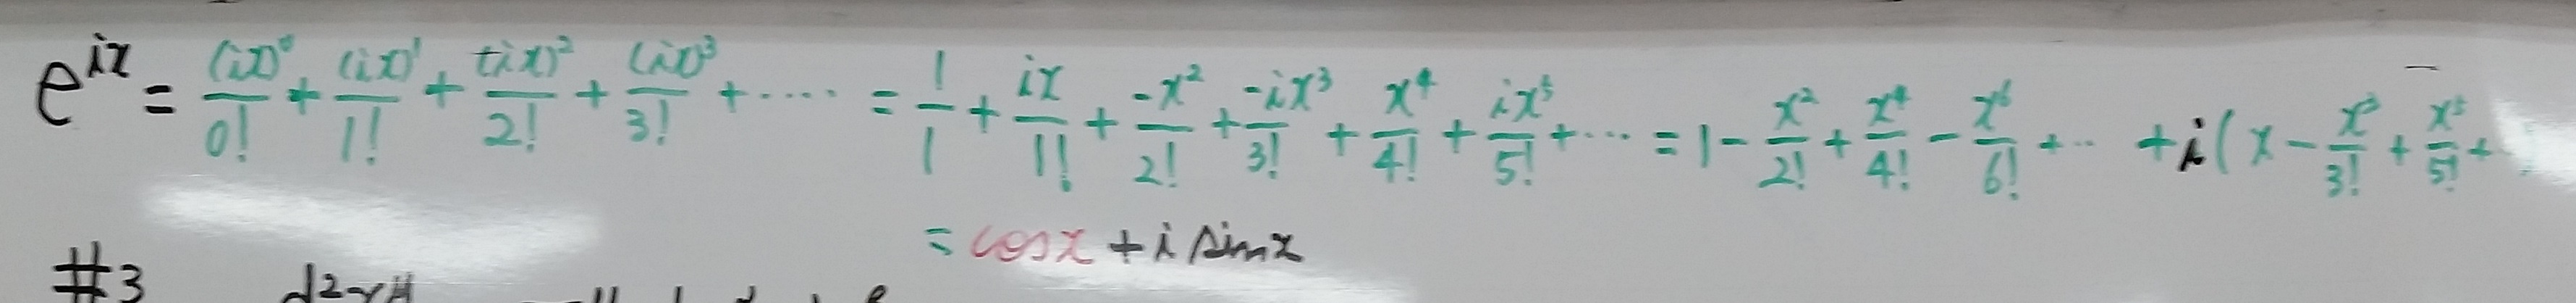 e^{ix} = \frac{(ix)^0}{0!} + \frac{(ix)^1}{1!} + \frac{(ix)^2}{2!} + \frac{(ix)^3}{3!} + ···· = \frac{1}{1} + \frac{ix}{1!} + \frac{-x^2}{2!} + \frac{-ix^3}{3!} + \frac{x^4}{4!} + \frac{ix^5}{5!} + ··· = 1 - \frac{x^2}{2!} + \frac{x^4}{4!} - \frac{x^6}{6!} + ·· + i(x - \frac{x^3}{3!} + \frac{x^5}{5!} +
= cosx + i sinx
#3